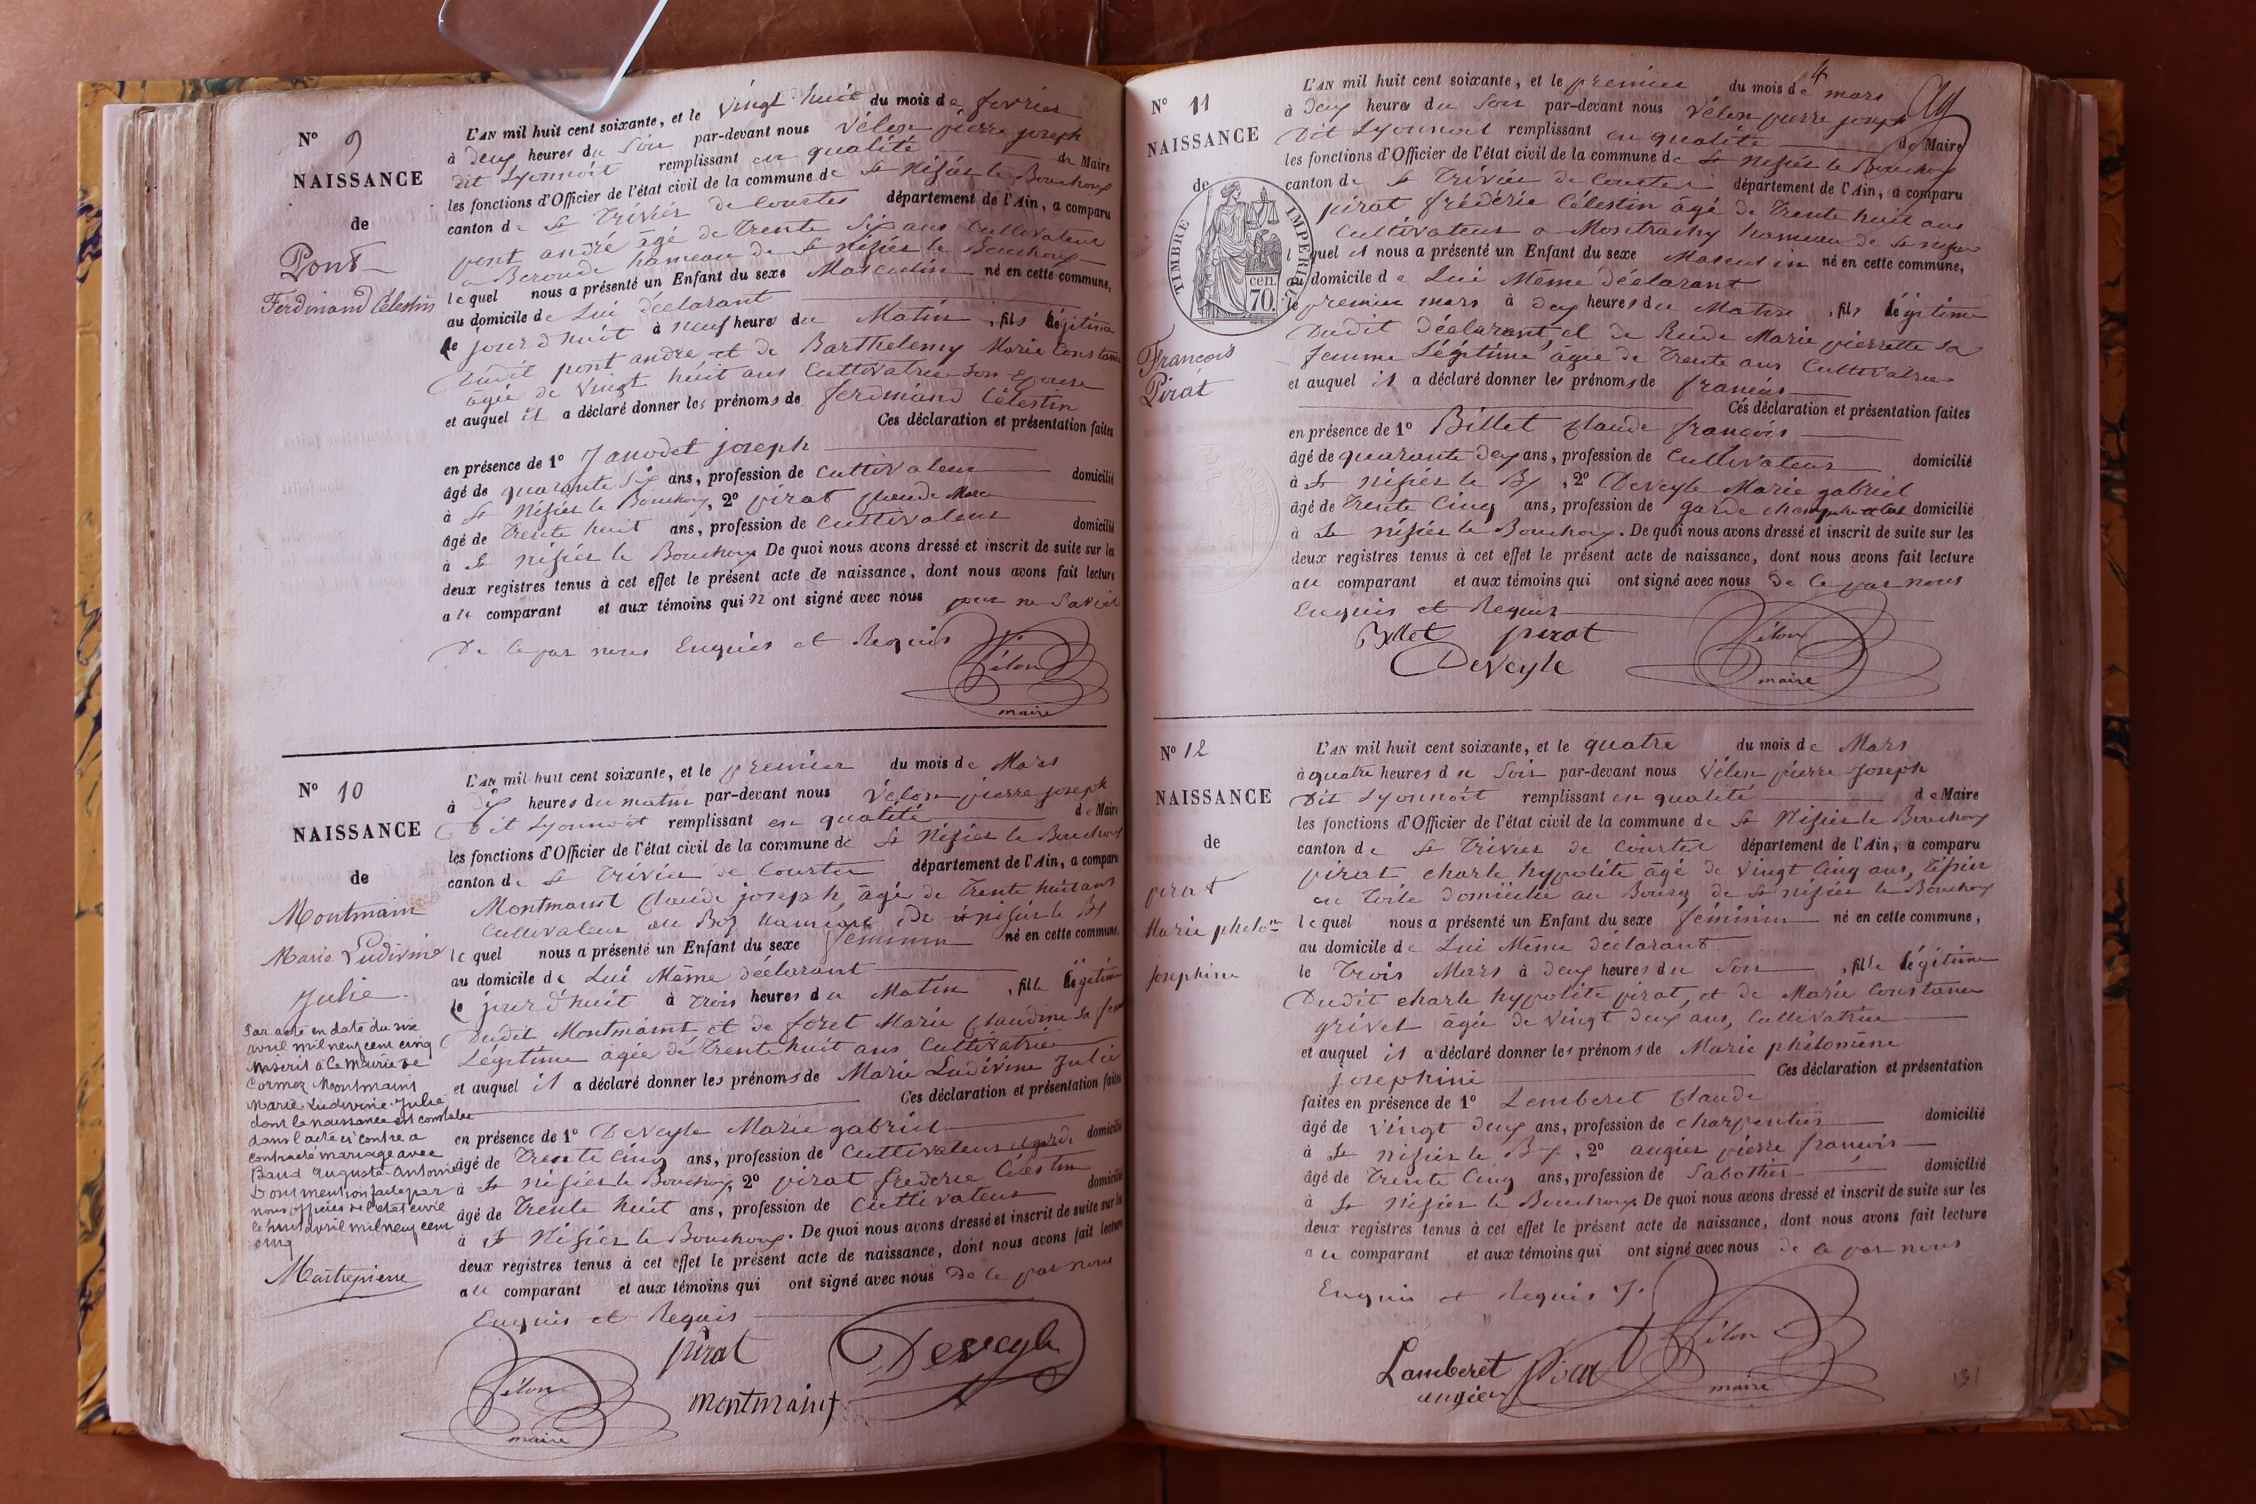 N° 9
NAISSANCE
de
Pont
Ferdinand Célestin
L'AN mil huit cent soixante, et le vingt huit du mois de fevrier
à deux heures du Soir par-devant nous Vélon pierre joseph
dit Lyonnoit remplissant en qualité de Maire
les fonctions d'Officier de l'état civil de la commune de St Nisiér le Bouchoux
canton de St Triviér de Courtes département de l'Ain, a comparu
pont andré âgé de Trente Six ans Cultivateur
a Beroude hameau de St Nisiér le Bouchoux
lequel nous a présenté un Enfant du sexe Masculin né en cette commune,
au domicile de Lui déclarant
le jour d'huit à neuf heures du Matin, fils légitime
Dudit pont andré et de Barthelemy Marie Constance
agée de Vingt huit ans Cultivatrice Son Epouse
et auquel il a déclaré donner les prénoms de ferdinand Célestin
Ces déclaration et présentation faites
en présence de 1° Janodet joseph
âgé de quarante Six ans, profession de Cultivateur domicilié
à St Nisiér le Bouchoux, 2° pirat Claude Marie
âgé de Trente huit ans, profession de Cultivateur domicilié
à St Nisiér le Bouchoux De quoi nous avons dressé et inscrit de suite sur les
deux registres tenus à cet effet le présent acte de naissance, dont nous avons fait lecture
au comparant et aux témoins qui n ont signé avec nous pour ne Savoir
De ce par nous Enquis et Requis
Vélon
maire
N° 10
NAISSANCE
de
Montmain
Marie Ludivine
Julie
Par acte en date du six
avril mil neuf cent cinq
inscrit à la Mairie de
Cormoz Montmaint
Marie Ludivine Julie
dont la naissance est constatée
dans l'acte ci contre a
contracté mariage avec
Baud Auguste Antonin
Dont mention faite par
nous officier de l'état civil
le huit avril mil neuf cent
cinq
Maitrepierre
L'AN mil huit cent soixante, et le premier du mois de Mars
à dix heures du matin par-devant nous Vélon pierre joseph
Dit Lyonnoit remplissant en qualité de Maire
les fonctions d'Officier de l'état civil de la commune de St Nisiér le Bouchoux
canton de St Triviér de Courtes département de l'Ain, a comparu
Montmaint Claude joseph, âgé de Trente huit ans
Cultivateur au Boz hameau de St nisiér le Bx
lequel nous a présenté un Enfant du sexe féminin né en cette commune,
au domicile de Lui Même déclarant
le jour d'huit à Trois heures du Matin, fille légitime
Dudit Montmaint et de foret Marie Claudine Sa femme
Légitime âgée de Trente huit ans Cultivatrice
et auquel il a déclaré donner les prénoms de Marie Ludivine Julie
Ces déclaration et présentation faites
en présence de 1° Deveyle Marie gabriel
âgé de Trente Cinq ans, profession de Cultivateur et garde domicilié
à St Nisiér le Bouchoux, 2° pirat frederic Célestin
âgé de Trente huit ans, profession de Cultivateur domicilié
à St Nisiér le Bouchoux. De quoi nous avons dressé et inscrit de suite sur les
deux registres tenus à cet effet le présent acte de naissance, dont nous avons fait lecture
au comparant et aux témoins qui ont signé avec nous de ce par nous
Enquis et Requis
pirat Deveyle
Vélon montmaint
maire
4
N° 11
NAISSANCE
de
TIMBRE IMPERIAL
CEN. 70.
François
Pirat
L'AN mil huit cent soixante, et le premier du mois de mars
à Deux heures du Soir par-devant nous Vélon pierre joseph
Dit Lyonnoit remplissant en qualité de Maire
les fonctions d'Officier de l'état civil de la commune de St Nisiér le Bouchoux
canton de St Triviér de Courtes département de l'Ain, a comparu
pirat fréderic Célestin âgé de Trente huit ans
Cultivateur a Montrachy hameau de St nisier
lequel il nous a présenté un Enfant du sexe Masculin né en cette commune,
au domicile de Lui Même déclarant
le premier mars à deux heures du Matin, fils légitime
Dudit déclarant, et de Rude Marie pierrette Sa
femme Légitime, âgée de Trente ans Cultivatrice
et auquel il a déclaré donner les prénoms de françois
Ces déclaration et présentation faites
en présence de 1° Billet Claude françois
âgé de quarante deux ans, profession de Cultivateur domicilié
à St Nisiér le Bx, 2° Deveyle Marie gabriel
âgé de Trente Cinq ans, profession de garde champêtre domicilié
à St Nisiér le Bouchoux. De quoi nous avons dressé et inscrit de suite sur les
deux registres tenus à cet effet le présent acte de naissance, dont nous avons fait lecture
au comparant et aux témoins qui ont signé avec nous de ce par nous
Enquis et Requis
Billet pirat Vélon
Deveyle maire
N° 12
NAISSANCE
de
pirat
Marie philomne
josephine
L'AN mil huit cent soixante, et le quatre du mois de Mars
à quatre heures du Soir par-devant nous Vélon pierre Joseph
Dit Lyonnoit remplissant en qualité de Maire
les fonctions d'Officier de l'état civil de la commune de St Nisiér le Bouchoux
canton de St Triviér de Courtes département de l'Ain, a comparu
pirat charle hypolite âgé de Vingt Cinq ans, Tissier
en Toile domicilié au Bourg de St nisiér le Bouchoux
lequel nous a présenté un Enfant du sexe féminin né en cette commune,
au domicile de Lui Même déclarant
le Trois Mars à deux heures du Soir, fille légitime
Dudit charle hypolite pirat, et de Marie Constance
grivet âgée de Vingt deux ans, Cultivatrice
et auquel il a déclaré donner les prénoms de Marie philomène
josephine Ces déclaration et présentation
faites en présence de 1° Lemberet Claude
âgé de Vingt deux ans, profession de charpentier domicilié
à St Nisiér le Bx, 2° augier pierre françois
âgé de Trente Cinq ans, profession de Sabothier domicilié
à St Nisiér le Bouchoux De quoi nous avons dressé et inscrit de suite sur les
deux registres tenus à cet effet le présent acte de naissance, dont nous avons fait lecture
au comparant et aux témoins qui ont signé avec nous de ce par nous
Enquis et Requis
Lamberet Pirat Vélon
augier maire